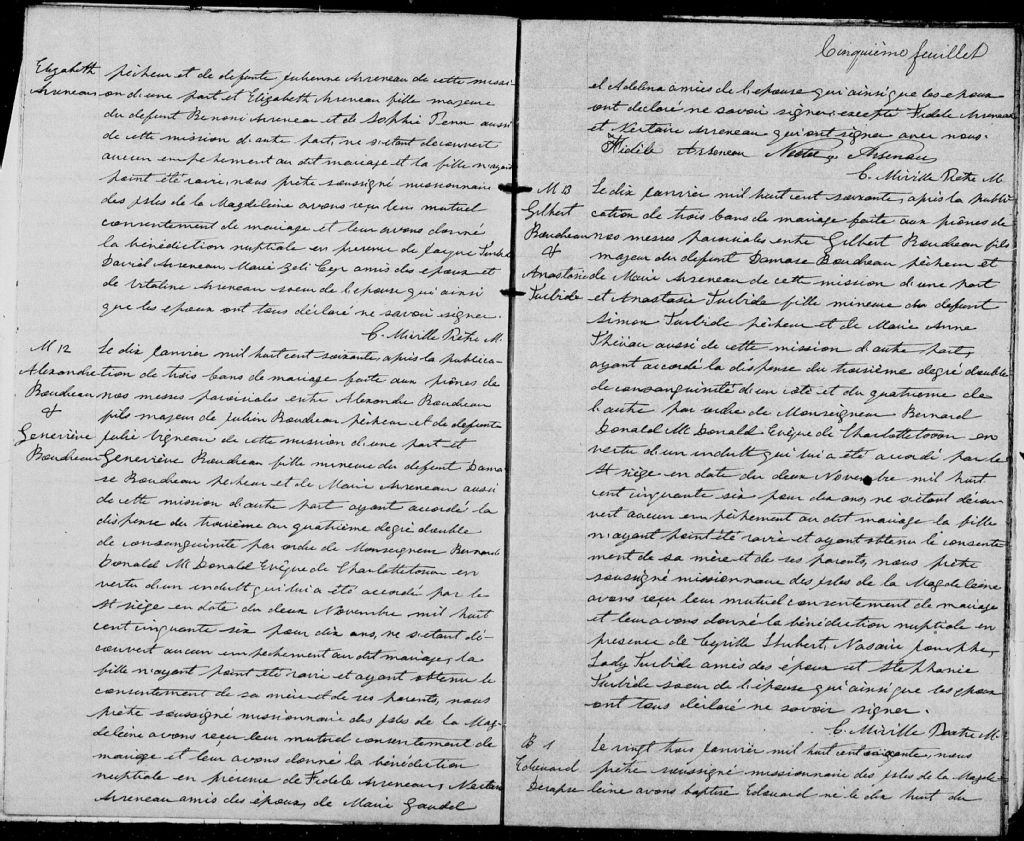 Elizabeth pêcheur et de defunte Julienne Arseneau de cette missi-
Arseneau on d'une part et Elizabeth Arseneau fille majeure
du defunt Benoni Arseneau et de Sophie Penn aussi
de cette mission d'autre part, ne s'etant decouvert
aucun empêchement au dit mariage et la fille n'ayant
point été ravie, nous prêtre soussigné missionnaire
des isles de la Magdeleine avons reçu leur mutuel
consentement de mariage et leur avons donné
la bénédiction nuptiale en presence de Jacque Turbide
David Arseneau, Marie Zoli Cyr amis des epoux et
de Vitaline Arseneau soeur de l'epouse qui ainsi
que les epoux ont tous déclaré ne savoir signer.
C. Miville Prêtre M.
M 12 Le dix Janvier mil huit cent soixante, après la publica-
Alexandre tion de trois bans de mariage faite aux prônes de
Boudreau nos messes paroissiales entre Alexandre Boudreau
& fils majeur de Julien Boudreau pêcheur et de defunte
Geneviève Julie Vigneau de cette mission d'une part et
Boudreau Geneviève Boudreau fille mineure du defunt Dama-
se Boudreau pêcheur et de Marie Arseneau aussi
de cette mission d'autre part ayant accordé la
dispense du troisième au quatrième degré double
de consanguinité par ordre de Monseigneur Bernard
Donald Mc Donald Evêque de Charlottetown en
vertu d'un indult qui lui a été accordé par le
St siège en date du deux Novembre mil huit
cent cinquante six pour dix ans, ne s'etant dé-
couvert aucun empêchement au dit mariage, la
fille n'ayant point été ravie et ayant obtenu le
consentement de sa mère et de ses parents, nous
prêtre soussigné missionnaire des isles de la Mag-
deleine avons reçu leur mutuel consentement de
mariage et leur avons donné la bénédiction
nuptiale en présence de Fidèle Arseneau, Nectaire
Arseneau amis des époux, de Marie Gaudet
Cinquième feuillet
et Adelina amies de l'epouse qui ainsi que les epoux
ont declaré ne savoir signer, excepté Fidèle Arseneau
et Nectaire Arseneau qui ont signer avec nous.
Fidèle Arseneau Arseneau
C. Miville Prêtre M.
M 13 Le dix Janvier mil huit cent soixante, après la publi-
Gilbert cation de trois bans de mariage faite aux prônes de
Boudreau nos messes paroissiales entre Gilbert Boudreau fils
& majeur du defunt Damase Boudreau pêcheur et
Anastasie de Marie Arseneau de cette mission d'une part
Turbide et Anastasie Turbide fille mineure du defunt
Simon Turbide pêcheur et de Marie Anne
aussi de cette mission d'autre part,
ayant accordé la dispense du troisième degré double
de consanguinité d'un côté et du quatrième de
l'autre par ordre de Monseigneur Bernard
Donald Mc Donald Evêque de Charlottetown en
vertu d'un indult qui lui a été accordé par le
St siège en date du deux Novembre mil huit
cent cinquante six pour dix ans, ne s'etant décou-
vert aucun empêchement au dit mariage la fille
n'ayant point été ravie et ayant obtenu le consente-
ment de sa mère et de ses parents, nous prêtre
soussigné missionnaire des isles de la Magdeleine
avons reçu leur mutuel consentement de mariage
et leur avons donné la bénédiction nuptiale en
presence de Cyrille Hubert, Nasaire
Lody Turbide amis des époux et Stephanie
Turbide soeur de l'épouse qui ainsi que les epoux
ont tous déclaré ne savoir signer.
C. Miville Prêtre M.
B 1 Le vingt trois Janvier mil huit cent soixante, nous
Edouard prêtre soussigné missionnaire des isles de la Magde-
Deraspe leine avons baptisé Edouard né le dix huit du